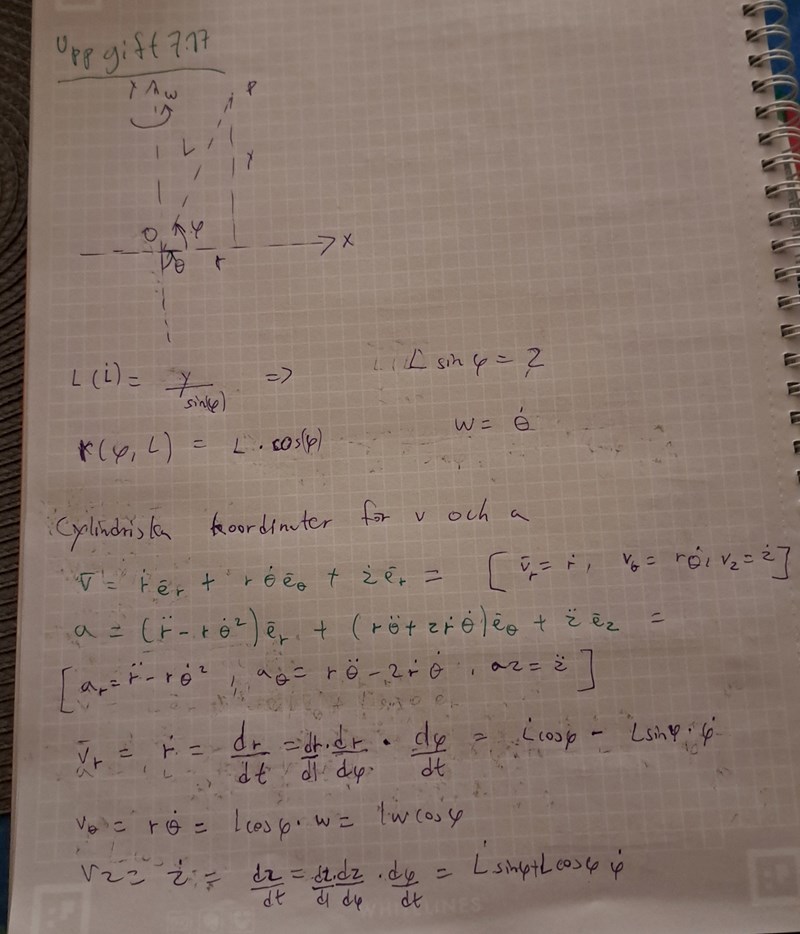 Uppgift 7.17
Y ω
P
L
Y
O φ
θ r X
L(L̇) = y/sin(φ) => L sin φ = z
r(φ, L) = L · cos(φ) w = θ̇
Cylindriska koordinater för v och a
v̄ = ṙ ē_r + r θ̇ ē_θ + ż ē_r = [v̄_r = ṙ, v_θ = r θ̇, v_z = ż]
a = (r̈ - r θ̇²) ē_r + (r θ̈ + 2 ṙ θ̇) ē_θ + z̈ ē_z =
[a_r = r̈ - r θ̇², a_θ = r θ̈ - 2 ṙ θ̇, az = z̈]
v̄_r = ṙ = dr/dt = dr/dl · dr/dφ · dφ/dt = L̇ cos φ - L sin φ · φ̇
v_θ = r θ̇ = l cos φ · w = l w cos φ
Vz = ż = dz/dt = dz/dl · dz/dφ · dφ/dt = L̇ sin φ + L cos φ φ̇